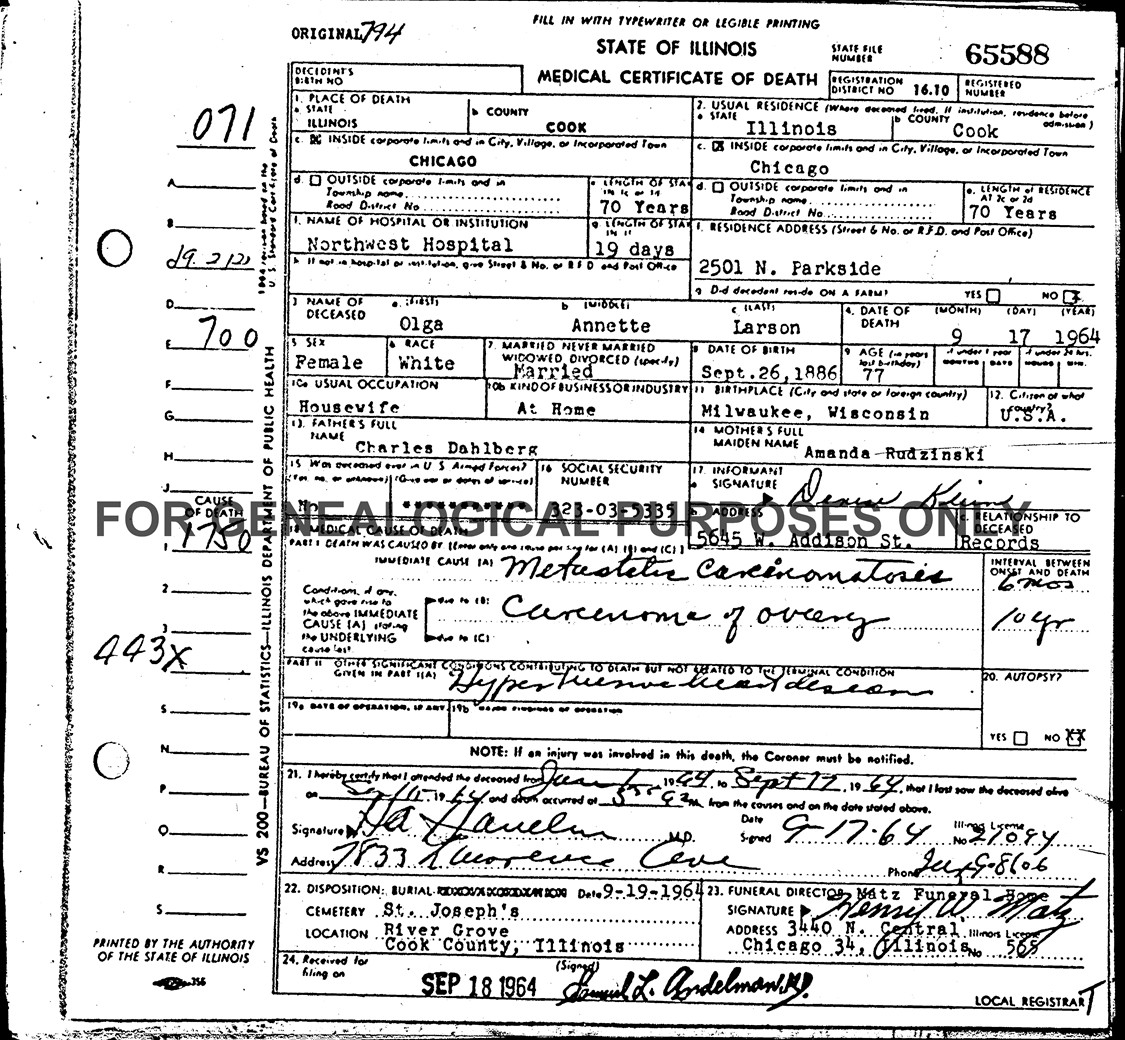 FILL IN WITH TYPEWRITER OR LEGIBLE PRINTING
ORIGINAL 794
STATE OF ILLINOIS
STATE FILE NUMBER 65588
MEDICAL CERTIFICATE OF DEATH
DECEDENT'S BIRTH NO
REGISTRATION DISTRICT NO 16.10
REGISTERED NUMBER
1. PLACE OF DEATH
a STATE ILLINOIS
b COUNTY COOK
2. USUAL RESIDENCE (Where deceased lived, If institution, residence before admission)
a STATE Illinois
b COUNTY Cook
c. INSIDE corporate limits and in City, Village, or Incorporated Town
CHICAGO
c. INSIDE corporate limits and in City, Village, or Incorporated Town
Chicago
d. OUTSIDE corporate limits and in
Township name
Road District No
e LENGTH OF STAY IN 1c or 1d
70 Years
d. OUTSIDE corporate limits and in
Township name
Road District No.
e. LENGTH of RESIDENCE AT 2c or 2d
70 Years
f. NAME OF HOSPITAL OR INSTITUTION
Northwest Hospital
g LENGTH OF STAY IN 1f
19 days
f. RESIDENCE ADDRESS (Street & No. or R.F.D. and Post Office)
2501 N. Parkside
h If not in hospital or institution, give Street & No. or R F D and Post Office
g Did decedent reside ON A FARM? YES NO X
3 NAME OF DECEASED
a. (FIRST) Olga
b (MIDDLE) Annette
c (LAST) Larson
4. DATE OF DEATH (MONTH) (DAY) (YEAR)
9 17 1964
5 SEX Female
6 RACE White
7. MARRIED NEVER MARRIED WIDOWED, DIVORCED (specify)
Married
8 DATE OF BIRTH
Sept.26,1886
9 AGE (in years last birthday)
77
if under 1 year MONTHS DAYS
if under 24 hrs. HOURS MIN.
10a USUAL OCCUPATION
Housewife
10b KIND OF BUSINESS OR INDUSTRY
At Home
11 BIRTHPLACE (City and state or foreign country)
Milwaukee, Wisconsin
12. Citizen of what country?
U.S.A.
13. FATHER'S FULL NAME
Charles Dahlberg
14 MOTHER'S FULL MAIDEN NAME
Amanda Rudzinski
15 Was deceased ever in U S Armed Forces?
(Yes, no, or unknown) (Give war or dates of service)
No
16 SOCIAL SECURITY NUMBER
323-03-5335
17. INFORMANT
a SIGNATURE Denise
b ADDRESS
5645 W. Addison St.
c. RELATIONSHIP TO DECEASED
Records
FOR GENEALOGICAL PURPOSES ONLY
18 MEDICAL CAUSE OF DEATH
PART I DEATH WAS CAUSED BY (Enter only one cause per line for (A) (B) and (C))
IMMEDIATE CAUSE (A) Metastatic Carcinomatosis
INTERVAL BETWEEN ONSET AND DEATH
6 mos
Conditions, if any, which gave rise to the above IMMEDIATE CAUSE (A) stating the UNDERLYING cause last.
due to (B) Carcinoma of ovary
10 yr
due to (C)
PART II OTHER SIGNIFICANT CONDITIONS CONTRIBUTING TO DEATH BUT NOT RELATED TO THE TERMINAL CONDITION GIVEN IN PART I(A)
Hypertensive heart disease
20. AUTOPSY?
YES NO XX
19a DATE OF OPERATION, IF ANY
19b MAJOR FINDINGS OF OPERATION
NOTE: If an injury was involved in this death, the Coroner must be notified.
21. I hereby certify that I attended the deceased from June 1 1964 to Sept 17 1964, that I last saw the deceased alive
on Sept 15 1964 and death occurred at M, from the causes and on the date stated above.
Signature M.D.
Date Signed 9-17-64
Illinois License No 21094
Address 7833 Lawrence Ave
Phone
22. DISPOSITION: BURIAL Date 9-19-1964
CEMETERY St. Joseph's
LOCATION River Grove
Cook County, Illinois
23. FUNERAL DIRECTOR Matz Funeral Home
SIGNATURE Henry W Matz
ADDRESS 3440 N. Central
Chicago 34, Illinois
Illinois License No 565
24. Received for filing on
SEP 18 1964
(Signed) Samuel L. Andelman, MD.
LOCAL REGISTRAR
071
A
B
D
E 700
F
G
H
J
CAUSE OF DEATH
1 1750
2
3
443X
S
N
P
O
R
S
VS 200—BUREAU OF STATISTICS—ILLINOIS DEPARTMENT OF PUBLIC HEALTH
PRINTED BY THE AUTHORITY
OF THE STATE OF ILLINOIS
356